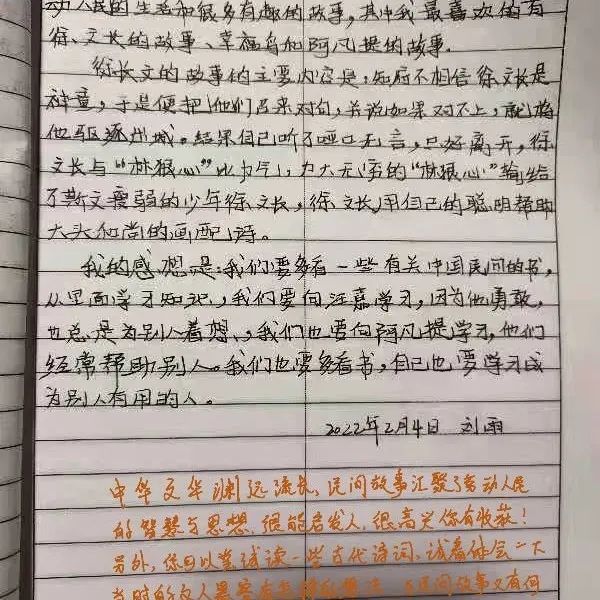 动人民的生活和很多有趣的故事,其中我最喜欢的有
徐文长的故事、幸福鸟和阿凡提的故事.
徐长文的故事的主要内容是:知府不相信徐文长是
神童,于是便把他们召来对句,并说如果对不上,就将
他驱逐州城。结果自己哑口无言,只好离开,徐
文长与“林狠心”比力气,力大无穷的“林狠心”输给
不斯文瘦弱的少年徐文长,徐文长用自己的聪明帮助
大头和尚的画配诗。
我的感想是:我们要多看一些有关中国民间的书,
从里面学习知识,我们要向汪嘉学习,因为他勇敢,
也总是为别人着想,我们也要向阿凡提学习,他们
经常帮助别人。我们也要多看书,自己也要学习成
为别人有用的人。
2022年2月4日 刘雨
中华文华渊远流长,民间故事汇聚了劳动人民
的智慧与思想,很能启发人,很高兴你有收获!
另外,你可以尝试读一些古代诗词,试着体会一下
当时的文人墨客有怎样的 民间故事又有何